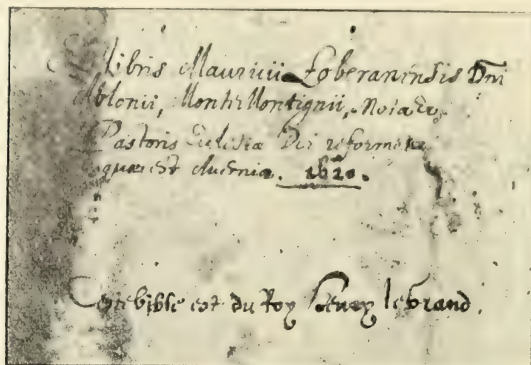 libris Mauricii Loberanensis Dni
Ablonii, Montis Montignii,
Pastoris Eclesiæ Dei reformatæ
quæ est 1620.
Ceste bible est du Roy henry le grand.